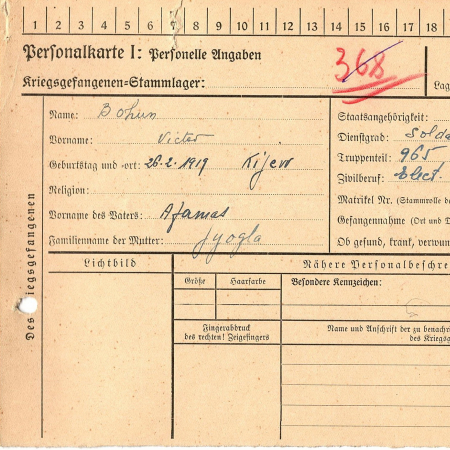 1 2 3 4 5 6 7 8 9 10 11 12 13 14 15 16 17 18
Personalkarte I: Personelle Angaben
368
Kriegsgefangenen-Stammlager:
Lag
Des Kriegsgefangenen
Name: Bohun
Vorname: Victor
Geburtstag und -ort: 26.2.1919 Kijew
Religion:
Vorname des Vaters: Afamas
Familienname der Mutter: Jyogla
Staatsangehörigkeit:
Dienstgrad: Solda
Truppenteil: 965
Zivilberuf: Elect.
Matrikel Nr. (Stammrolle de
Gefangennahme (Ort und D
Ob gesund, krank, verwun
Lichtbild
Nähere Personalbeschre
Größe
Haarfarbe
Besondere Kennzeichen:
Fingerabdruck
des rechten! Zeigefingers
Name und Anschrift der zu benach
des Kriegs